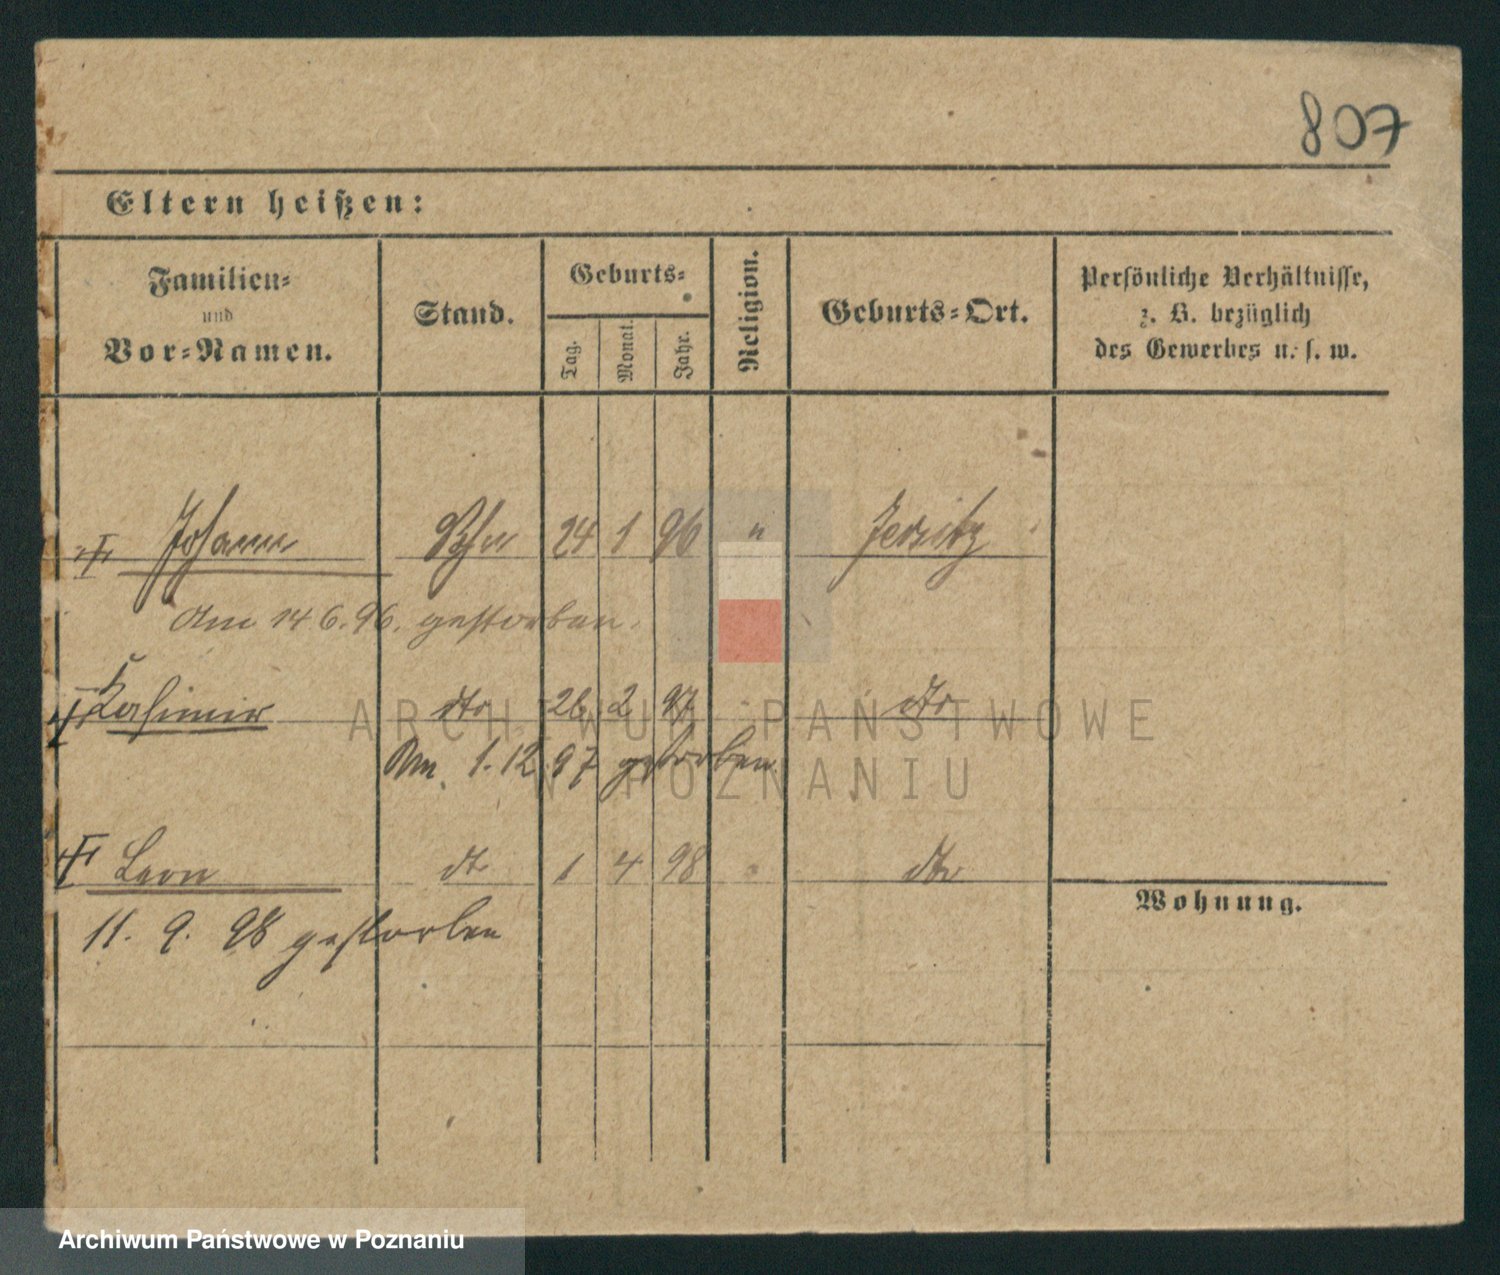 807
Eltern heißen:
Familien-
und
Vor-Namen.
Stand.
Geburts-
Tag.
Monat.
Jahr.
Religion.
Geburts-Ort.
Persönliche Verhältnisse,
z. B. bezüglich
des Gewerbes u. s. w.
Johann Sohn 24 1 96 " Jersitz
Am 14 6. 96. gestorben.
Kasimir dto 26 2 97 dto
Am 1. 12 97 gestorben
Leon dto 1 4 98 dto
11. 9. 98 gestorben
Wohnung.
ARCHIWUM PAŃSTWOWE
W POZNANIU
Archiwum Państwowe w Poznaniu